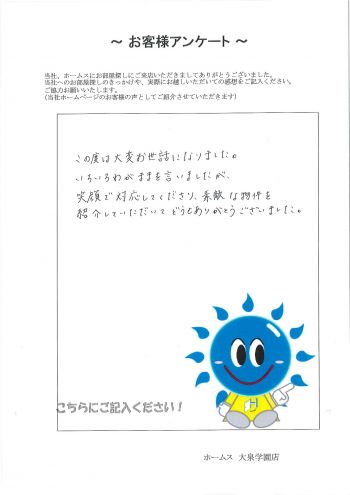 ～ お客様アンケート ～
当社、ホームスにお部屋探しにご来店いただきましてありがとうございました。
当社へのお部屋探しのきっかけや、実際にお越しいただいての感想をご記入ください。
ご協力お願いいたします。
(当社ホームページのお客様の声としてご紹介させていただきます)
この度は大変お世話になりました。
いろいろわがままを言いましたが、
笑顔で対応してくださり、素敵な物件を
紹介していただいてどうもありがとうございました。
こちらにご記入ください！
ホームス 大泉学園店